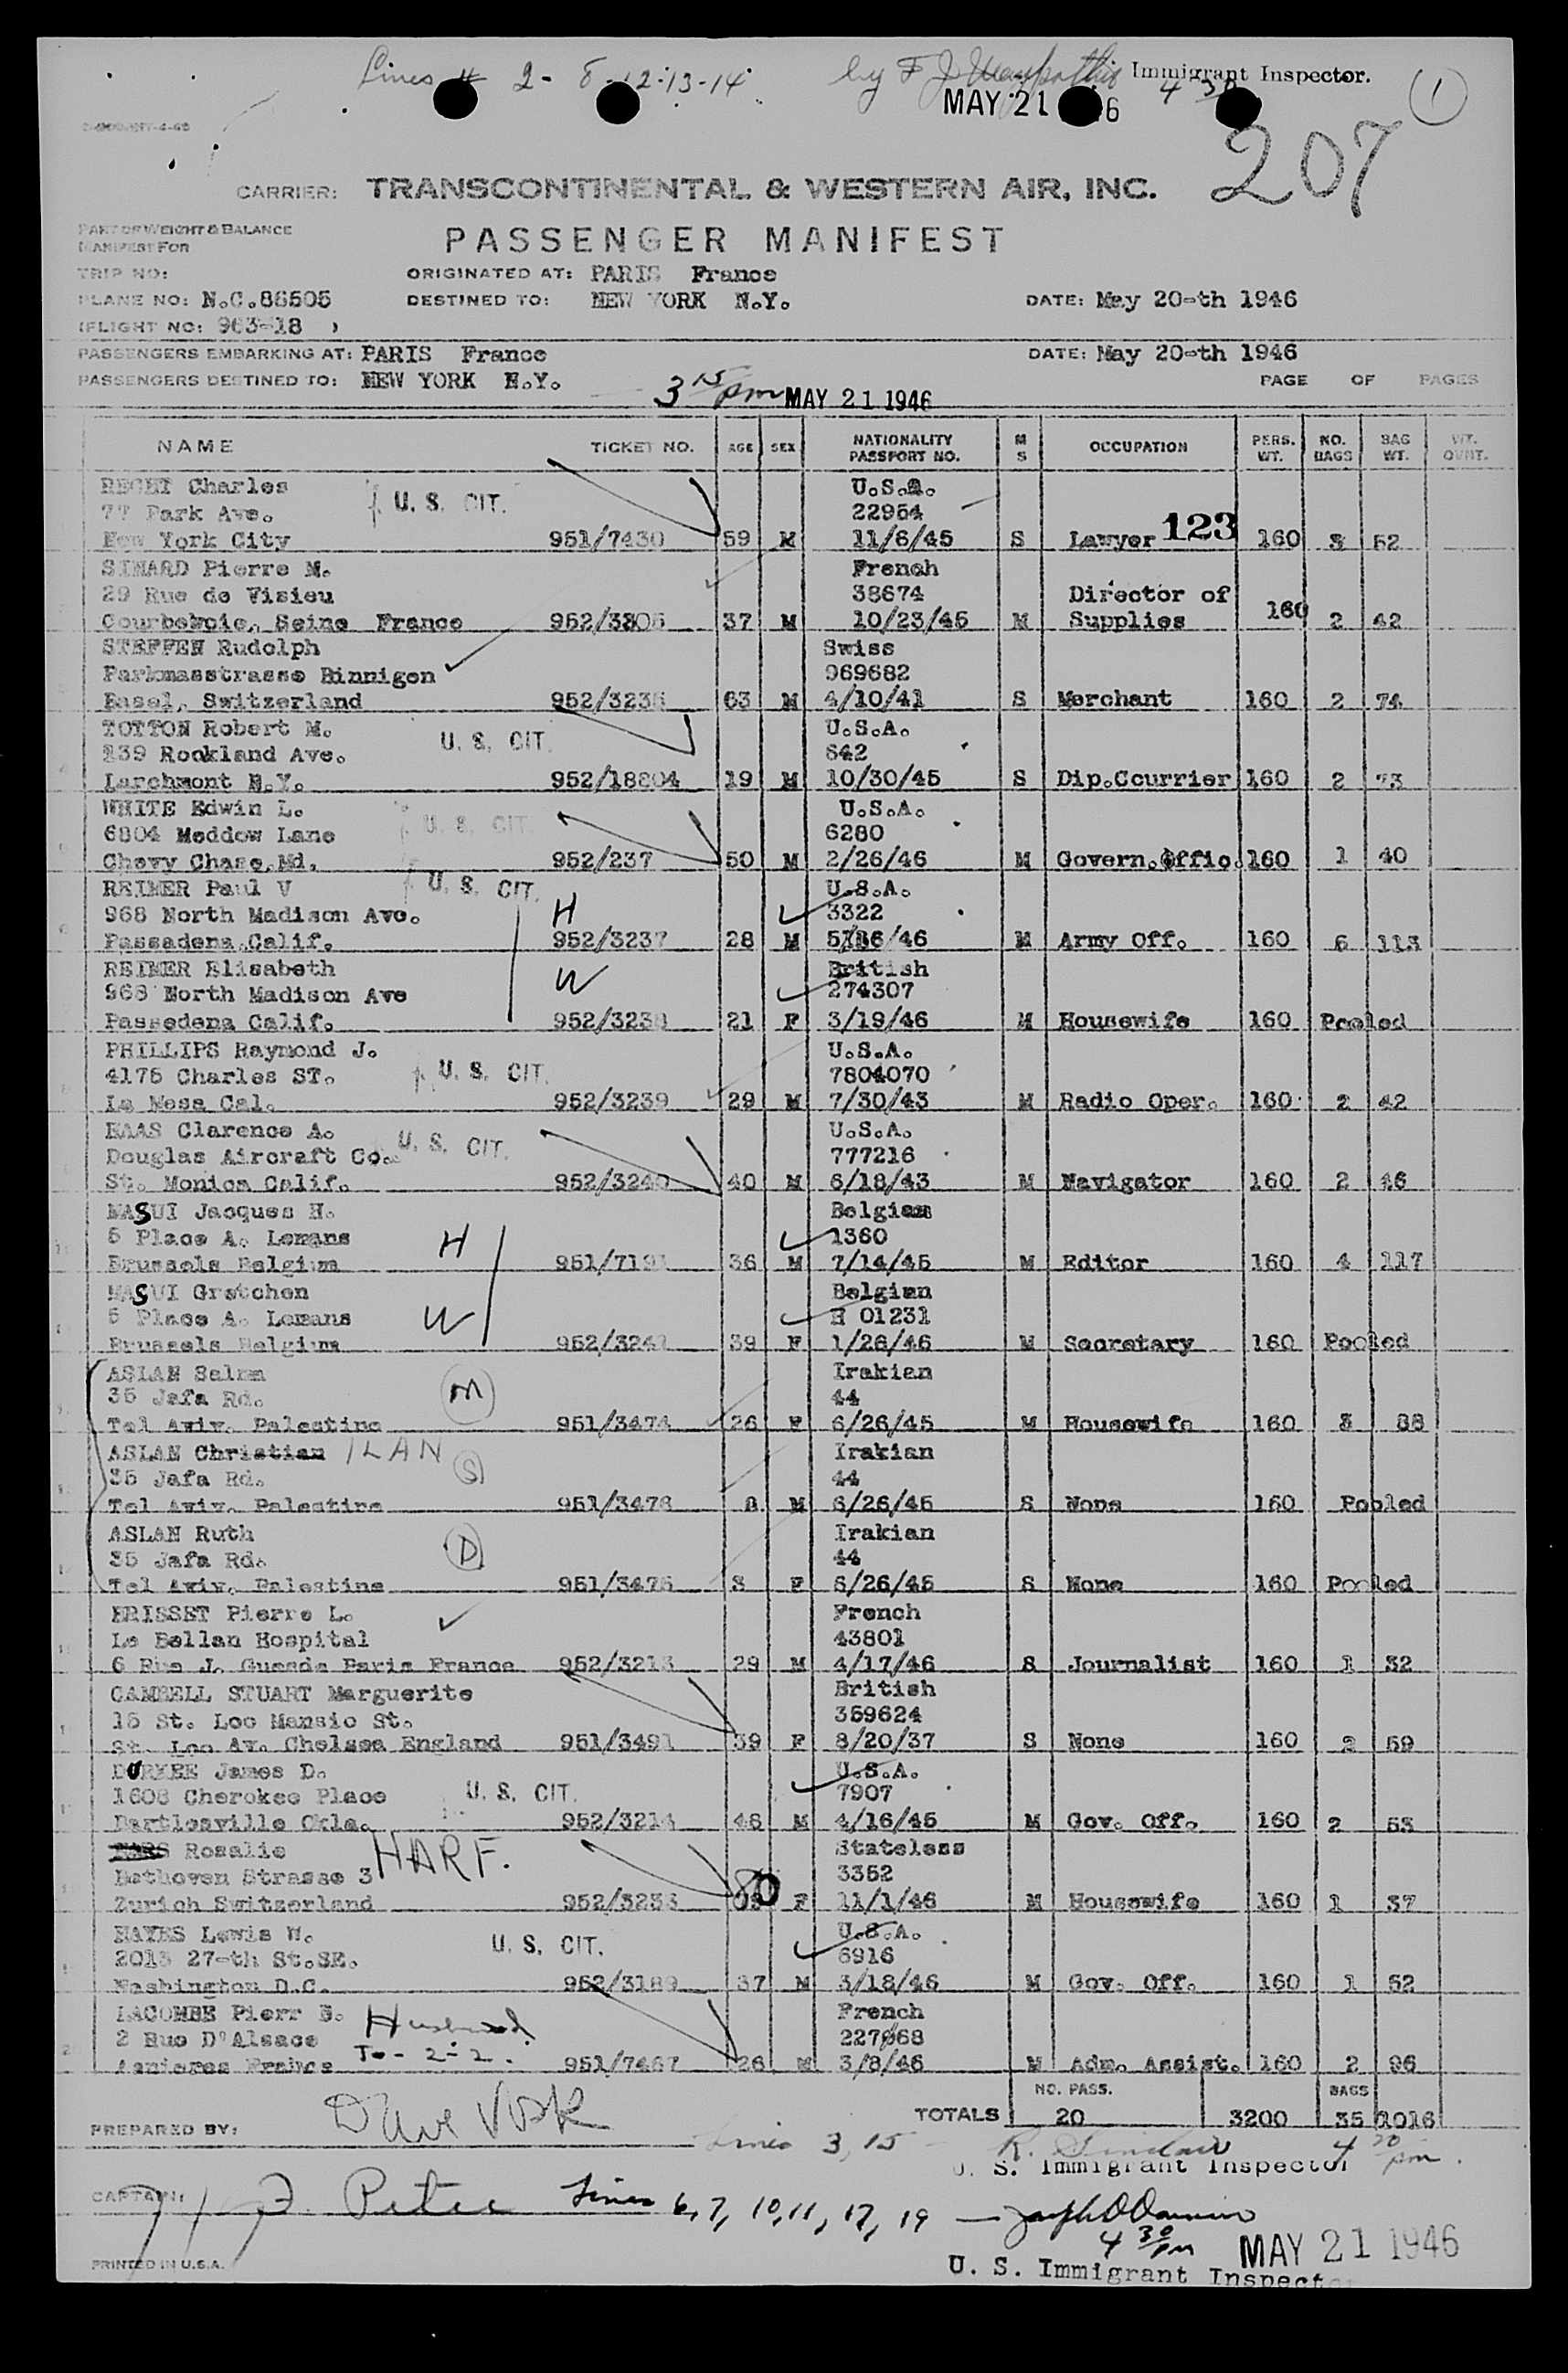 Lines 2 - 8 - 12-13-14 by F J Immigrant Inspector.
MAY 21 6 4 30 1
207
CARRIER: TRANSCONTINENTAL & WESTERN AIR, INC.
PART OF WEIGHT & BALANCE
MANIFEST FOR
PASSENGER MANIFEST
TRIP NO: ORIGINATED AT: PARIS France
PLANE NO: N.C.86505 DESTINED TO: NEW YORK N.Y. DATE: May 20-th 1946
(FLIGHT NO: 963-18 )
PASSENGERS EMBARKING AT: PARIS France DATE: May 20-th 1946
PASSENGERS DESTINED TO: NEW YORK N.Y. 3 15 pm MAY 21 1946 PAGE OF PAGES
NAME TICKET NO. AGE SEX NATIONALITY PASSPORT NO. M S OCCUPATION PERS. WT. NO. BAGS BAG WT. WT. OVHT.
RECHT Charles U. S. CIT. U.S.A.
77 Park Ave. 22954
New York City 951/7430 59 M 11/6/45 S Lawyer 123 160 3 52
SIMARD Pierre M. French
29 Rue de Visieu 38674 Director of
Seine France 952/3805 37 M 10/23/45 M Supplies 160 2 42
STEFFEN Rudolph Swiss
Parkmasstrasse Binnigen 969682
Basel, Switzerland 952/3235 63 M 4/10/41 S Merchant 160 2 74
TOTTON Robert M. U. S. CIT. U.S.A.
139 Rockland Ave. 642
Larchmont N.Y. 952/18804 19 M 10/30/45 S Dip.Courrier 160 2 73
WHITE Edwin L. U. S. CIT. U.S.A.
6804 Meddow Lane 6280
Chevy Chase,Md. 952/237 50 M 2/26/46 M Govern.Offic. 160 1 40
REIMER Paul V U. S. CIT. U.S.A.
968 North Madison Ave. H 3322
Passadena,Calif. 952/3237 28 M /46 M Army Off. 160 6 113
REIMER Elisabeth British
968 North Madison Ave W 274307
Passedena Calif. 952/3238 21 F 3/19/46 M Housewife 160 Pooled
PHILLIPS Raymond J. U.S.A.
4175 Charles ST. U. S. CIT. 7804070
La Mesa Cal. 952/3239 29 M 7/30/43 M Radio Oper. 160 2 42
HAAS Clarence A. U. S. CIT. U.S.A.
Douglas Aircraft Co. 777216
St. Monica Calif. 952/3240 40 M 6/18/43 M Navigator 160 2 46
MASUI Jacques H. Belgian
5 Place A. Lemans H 1360
Brussels Belgium 951/7191 36 M 7/14/45 M Editor 160 4 117
MASUI Gretchen Belgian
5 Place A. Lemans W H 01231
Brussels Belgium 952/3241 39 F 1/26/46 M Secretary 160 Pooled
ASLAN Salma Irakien
35 Jafa Rd. M 44
Tel Aviv. Palestine 951/3474 26 F 6/26/45 M Housewife 160 3 88
ASLAN Christian ILAN Irakian
35 Jafa Rd. S 44
Tel Aviv. Palestine 951/3476 8 M 6/26/45 S None 160 Pooled
ASLAN Ruth Irakian
35 Jafa Rd. D 44
Tel Aviv. Palestine 951/3475 3 F 6/26/45 S None 160 Pooled
BRISSET Pierre L. French
Le Bellan Hospital 43801
6 Rue J. Guesde Paris France 952/3213 29 M 4/17/46 S Journalist 160 1 32
CAMBELL STUART Marguerite British
15 St. Loo Mansio St. 359624
St. Loo Av. Chelsea England 951/3491 39 F 8/20/37 S None 160 2 59
DURKEE James D. U.S.A.
1608 Cherokee Place U. S. CIT. 7907
Bartlesville Okla. 952/3214 48 M 4/16/45 M Gov. Off. 160 2 53
Rosalie HARF. Stateless
Bethoven Strasse 3 3352
Zurich Switzerland 952/3233 80 F 11/1/46 M Housewife 160 1 37
HAYES Lewis W. U.S.A.
2013 27-th St.SE. U. S. CIT. 6916
Washington D.C. 952/3189 37 M 3/18/46 M Gov. Off. 160 1 52
LACOMBE Pierr E. Husband French
2 Rue D'Alsace To - 2-2. 227068
Asnieres France 951/7467 26 M 3/8/46 M Adm. Assist. 160 2 96
NO. PASS. BAGS
TOTALS 20 3200 35 1016
PREPARED BY:
Lines 3, 15 - R. Sinclair 4 30 pm.
U. S. Immigrant Inspector
CAPTAIN: Lines 6, 7, 10, 11, 17, 19 —
4 30 pm MAY 21 1946
PRINTED IN U.S.A. U. S. Immigrant Inspector